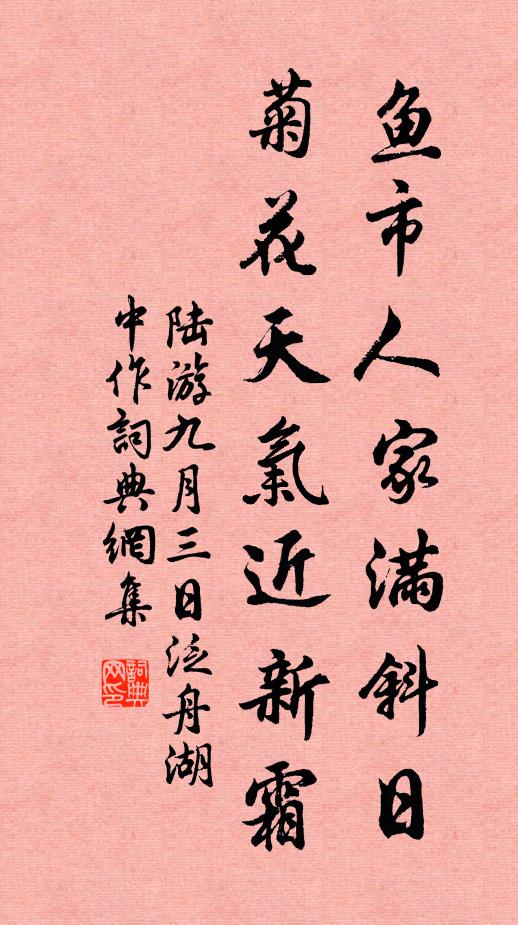 鱼市人家滿斜日
菊花天氣近新霜
陆游九月三日泛舟湖
中作詞典網集
詞典网印